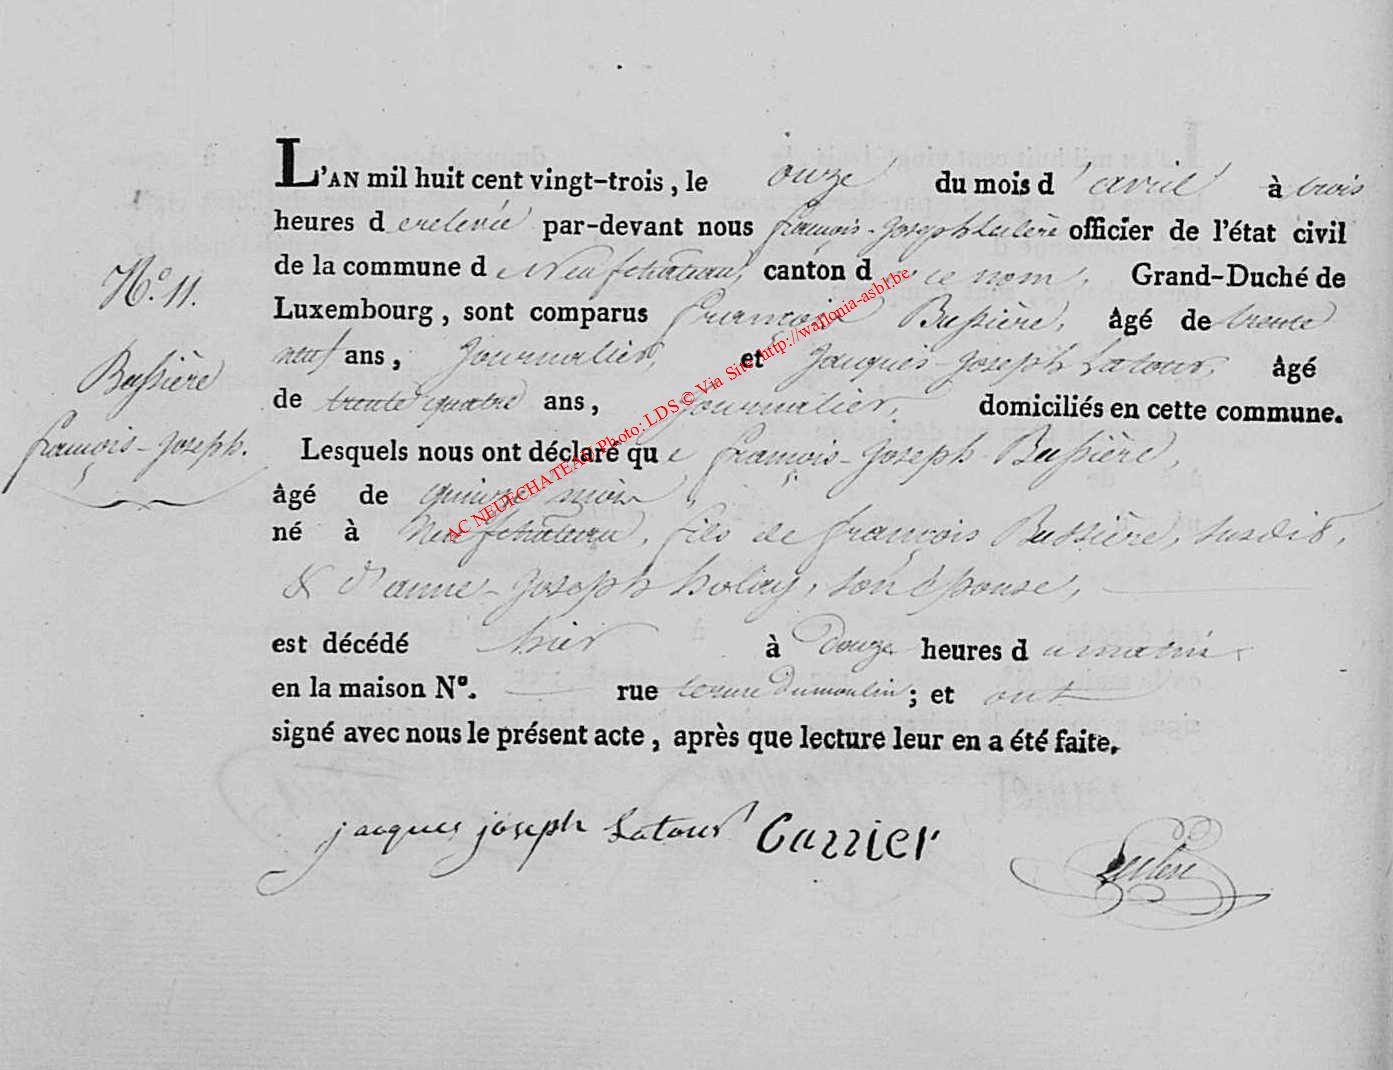 L'AN mil huit cent vingt-trois, le onze du mois d'avril à trois
heures d erelevée par-devant nous françois-joseph officier de l'état civil
de la commune d e Neufchateau, canton d e ce nom, Grand-Duché de
Luxembourg, sont comparus françois Bussière, âgé de trente
neuf ans, journalier, et jacques-joseph Latour, âgé
de trente quatre ans, journalier, domiciliés en cette commune.
Lesquels nous ont déclaré qu e françois-joseph Bussière,
âgé de quinze mois,
né à Neufchateau, fils de françois Bussière, susdit,
& d'anne-joseph son épouse,
est décédé hier à Douze heures d u matin
en la maison N°. rue du moulin; et ont
signé avec nous le présent acte, après que lecture leur en a été faite.
N.° 11.
Bussière
françois-joseph.
jacques joseph Latour
AC NEUFCHATEAU Photo: LDS © Via Site http://wallonia-asbl.be